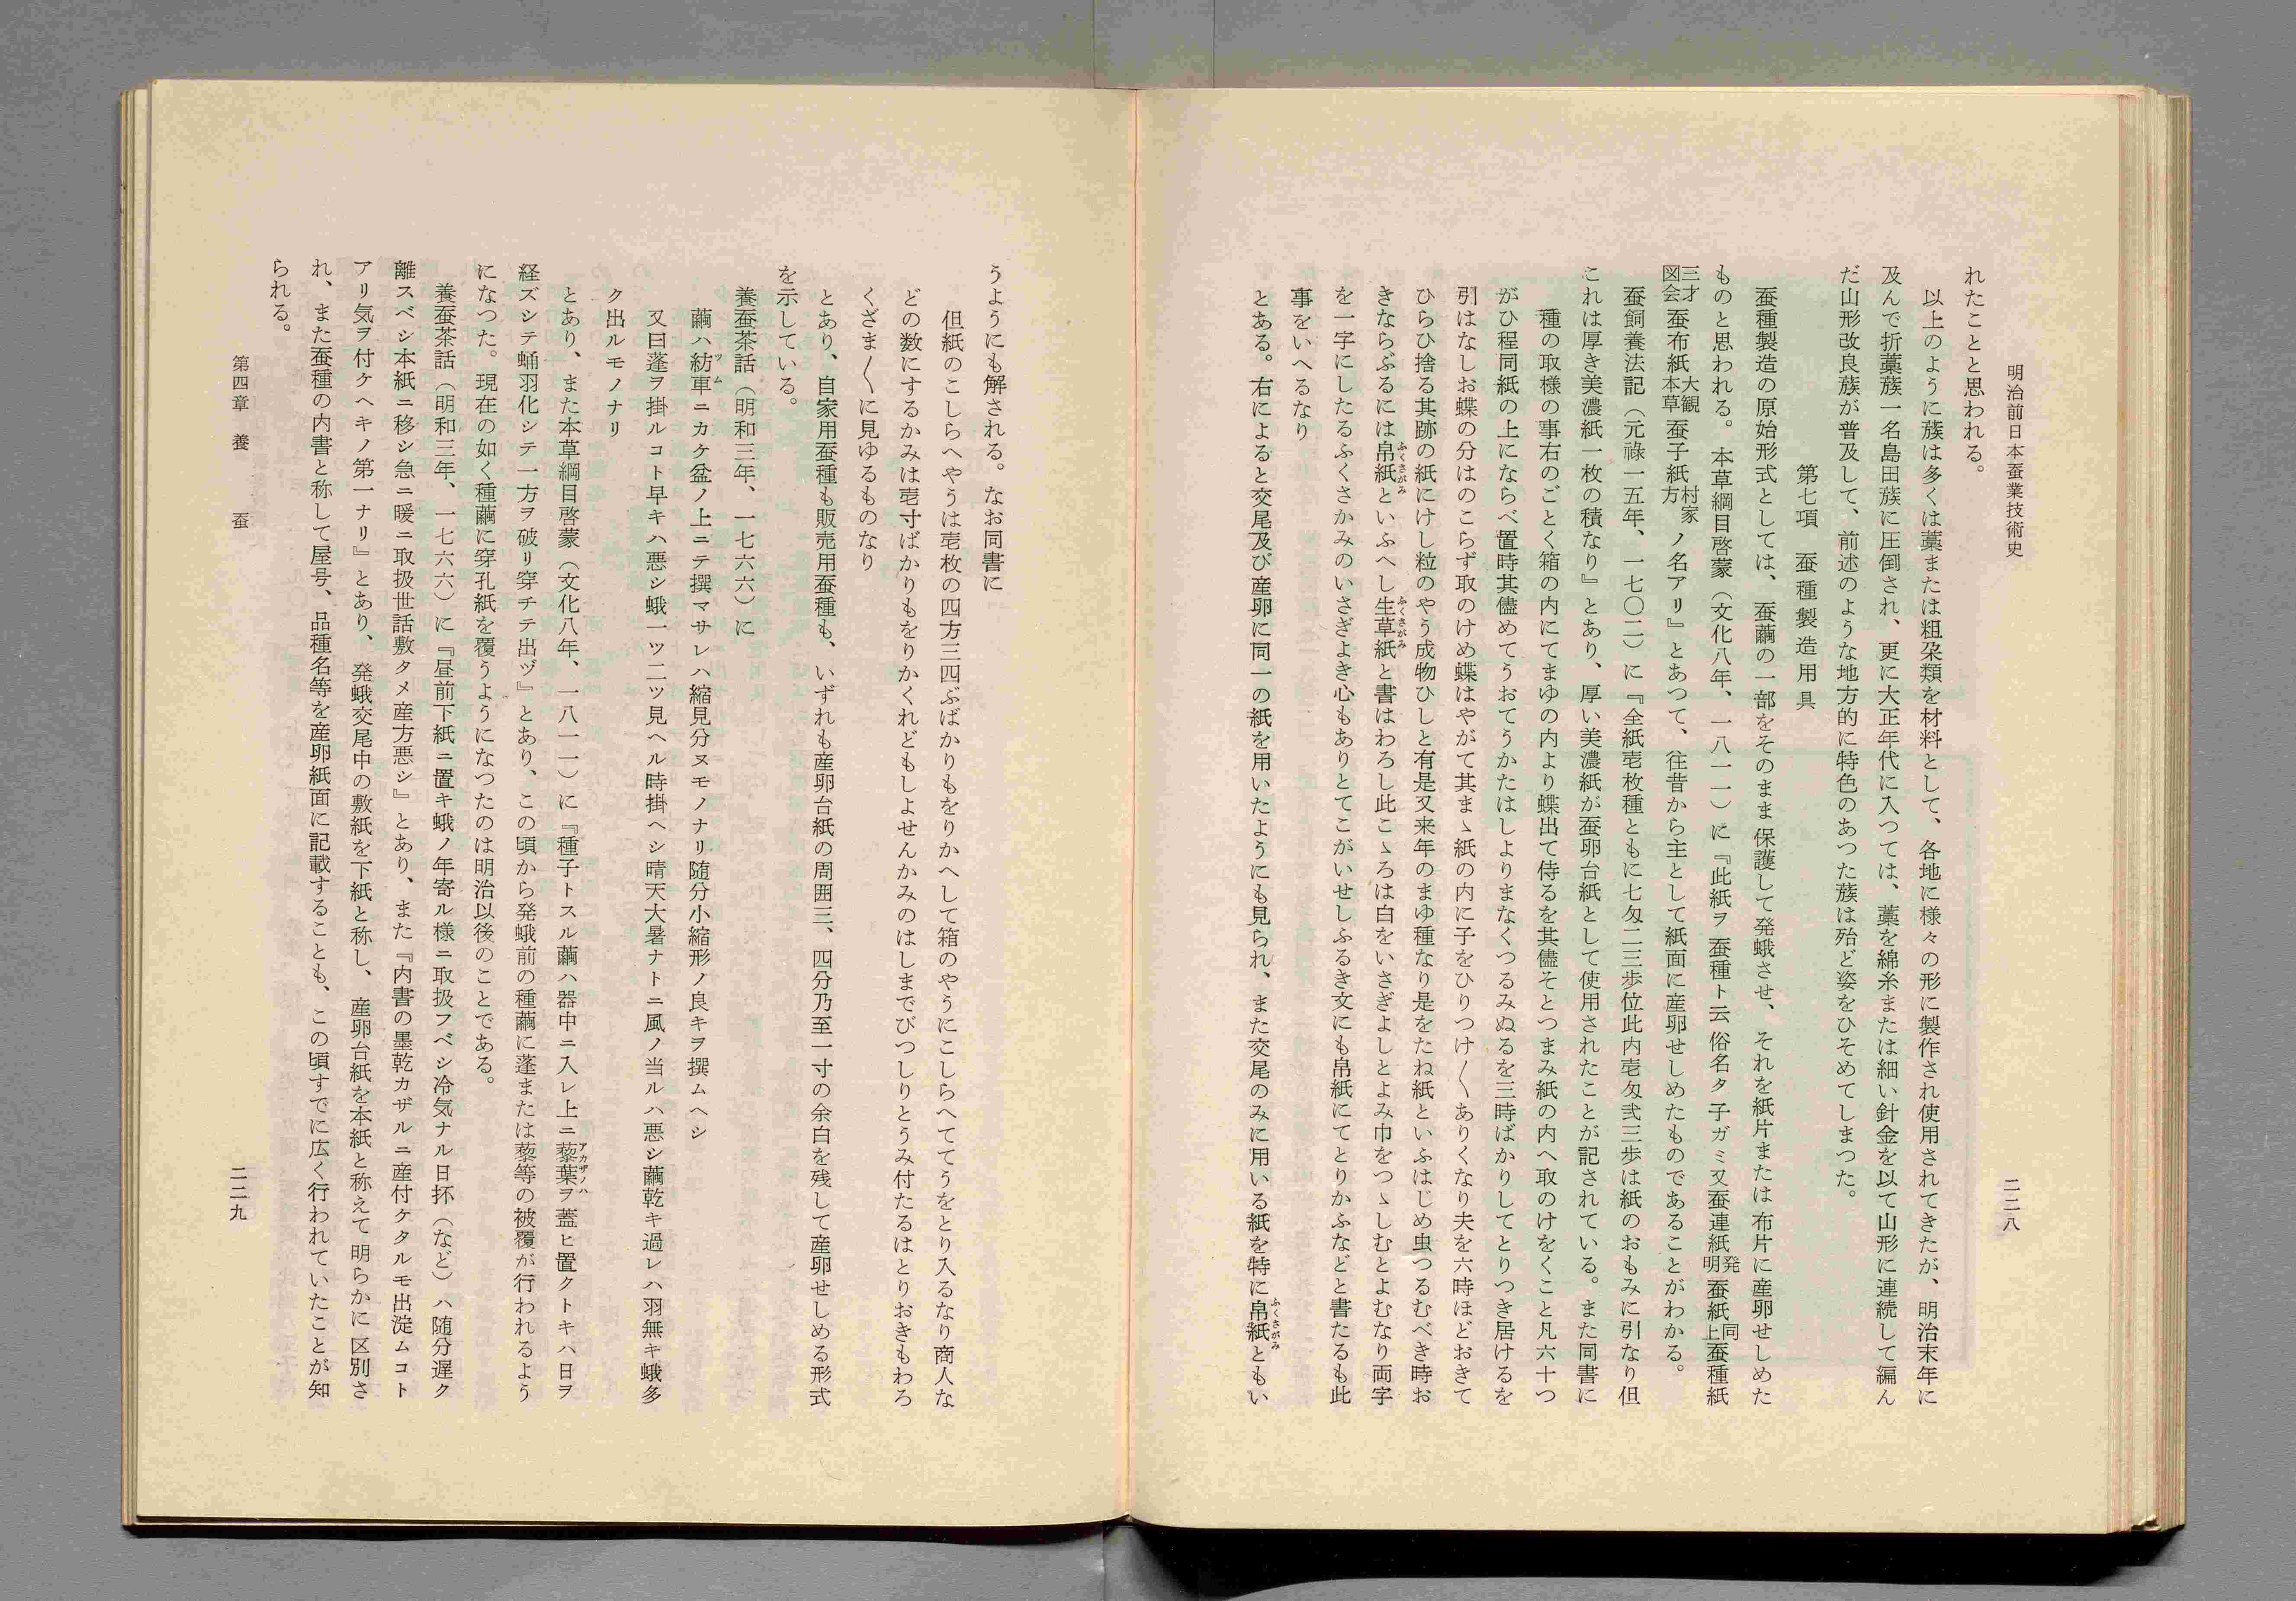 明治前日本蚕業技術史
二二八
れたことと思われる。
以上のように蔟は多くは藁または粗朶類を材料として、各地に様々の形に製作され使用されてきたが、明治末年に
及んで折藁蔟一名島田蔟に圧倒され、更に大正年代に入つては、藁を綿糸または細い針金を以て山形に連続して編ん
だ山形改良蔟が普及して、前述のような地方的に特色のあつた蔟は殆ど姿をひそめてしまつた。
第七項 蚕種製造用具
蚕種製造の原始形式としては、蚕繭の一部をそのまま保護して発蛾させ、それを紙片または布片に産卵せしめた
ものと思われる。本草綱目啓蒙（文化八年、一八一一）に『此紙ヲ蚕種ト云俗名タ子ガミ又蚕連紙発明蚕紙同上蚕種紙
三才図会蚕布紙大観本草蚕子紙村家方ノ名アリ』とあつて、往昔から主として紙面に産卵せしめたものであることがわかる。
蚕飼養法記（元祿一五年、一七〇二）に『全紙壱枚種ともに七匁二三歩位此内壱匁弐三歩は紙のおもみに引なり但
これは厚き美濃紙一枚の積なり』とあり、厚い美濃紙が蚕卵台紙として使用されたことが記されている。また同書に
種の取様の事右のごとく箱の内にてまゆの内より蝶出て侍るを其儘そとつまみ紙の内へ取のけをくこと凡六十つ
がひ程同紙の上にならべ置時其儘めてうおてうかたはしよりまなくつるみぬるを三時ばかりしてとりつき居けるを
引はなしお蝶の分はのこらず取のけめ蝶はやがて其まゝ紙の内に子をひりつけ〳〵ありくなり夫を六時ほどおきて
ひらひ捨る其跡の紙にけし粒のやう成物ひしと有是又来年のまゆ種なり是をたね紙といふはじめ虫つるむべき時お
きならぶるには帛紙ふくさがみといふへし生草紙ふくさがみと書はわろし此こゝろは白をいさぎよしとよみ巾をつゝしむとよむなり両字
を一字にしたるふくさかみのいさぎよき心もありとてこがいせしふるき文にも帛紙にてとりかふなどと書たるも此
事をいへるなり
とある。右によると交尾及び産卵に同一の紙を用いたようにも見られ、また交尾のみに用いる紙を特に帛紙ふくさがみともい
うようにも解される。なお同書に
但紙のこしらへやうは壱枚の四方三四ぶばかりもをりかへして箱のやうにこしらへててうをとり入るなり商人な
どの数にするかみは壱寸ばかりもをりかくれどもしよせんかみのはしまでびつしりとうみ付たるはとりおきもわろ
くざま〳〵に見ゆるものなり
とあり、自家用蚕種も販売用蚕種も、いずれも産卵台紙の周囲三、四分乃至一寸の余白を残して産卵せしめる形式
を示している。
養蚕茶話（明和三年、一七六六）に
繭ハ紡車ツムニカケ盆ノ上ニテ撰マサレハ縮見分ヌモノナリ随分小縮形ノ良キヲ撰ムヘシ
又曰蓬ヲ掛ルコト早キハ悪シ蛾一ツ二ツ見ヘル時掛ヘシ晴天大暑ナトニ風ノ当ルハ悪シ繭乾キ過レハ羽無キ蛾多
ク出ルモノナリ
とあり、また本草綱目啓蒙（文化八年、一八一一）に『種子トスル繭ハ器中ニ入レ上ニ藜葉アカザノハヲ蓋ヒ置クトキハ日ヲ
経ズシテ蛹羽化シテ一方ヲ破リ穿チテ出ヅ』とあり、この頃から発蛾前の種繭に蓬または藜等の被覆が行われるよう
になつた。現在の如く種繭に穿孔紙を覆うようになつたのは明治以後のことである。
養蚕茶話（明和三年、一七六六）に『昼前下紙ニ置キ蛾ノ年寄ル様ニ取扱フベシ冷気ナル日抔（など）ハ随分遅ク
離スベシ本紙ニ移シ急ニ暖ニ取扱世話敷タメ産方悪シ』とあり、また『内書の墨乾カザルニ産付ケタルモ出淀ムコト
アリ気ヲ付ケヘキノ第一ナリ』とあり、発蛾交尾中の敷紙を下紙と称し、産卵台紙を本紙と称えて明らかに区別さ
れ、また蚕種の内書と称して屋号、品種名等を産卵紙面に記載することも、この頃すでに広く行われていたことが知
られる。
第四章 養蚕
二二九